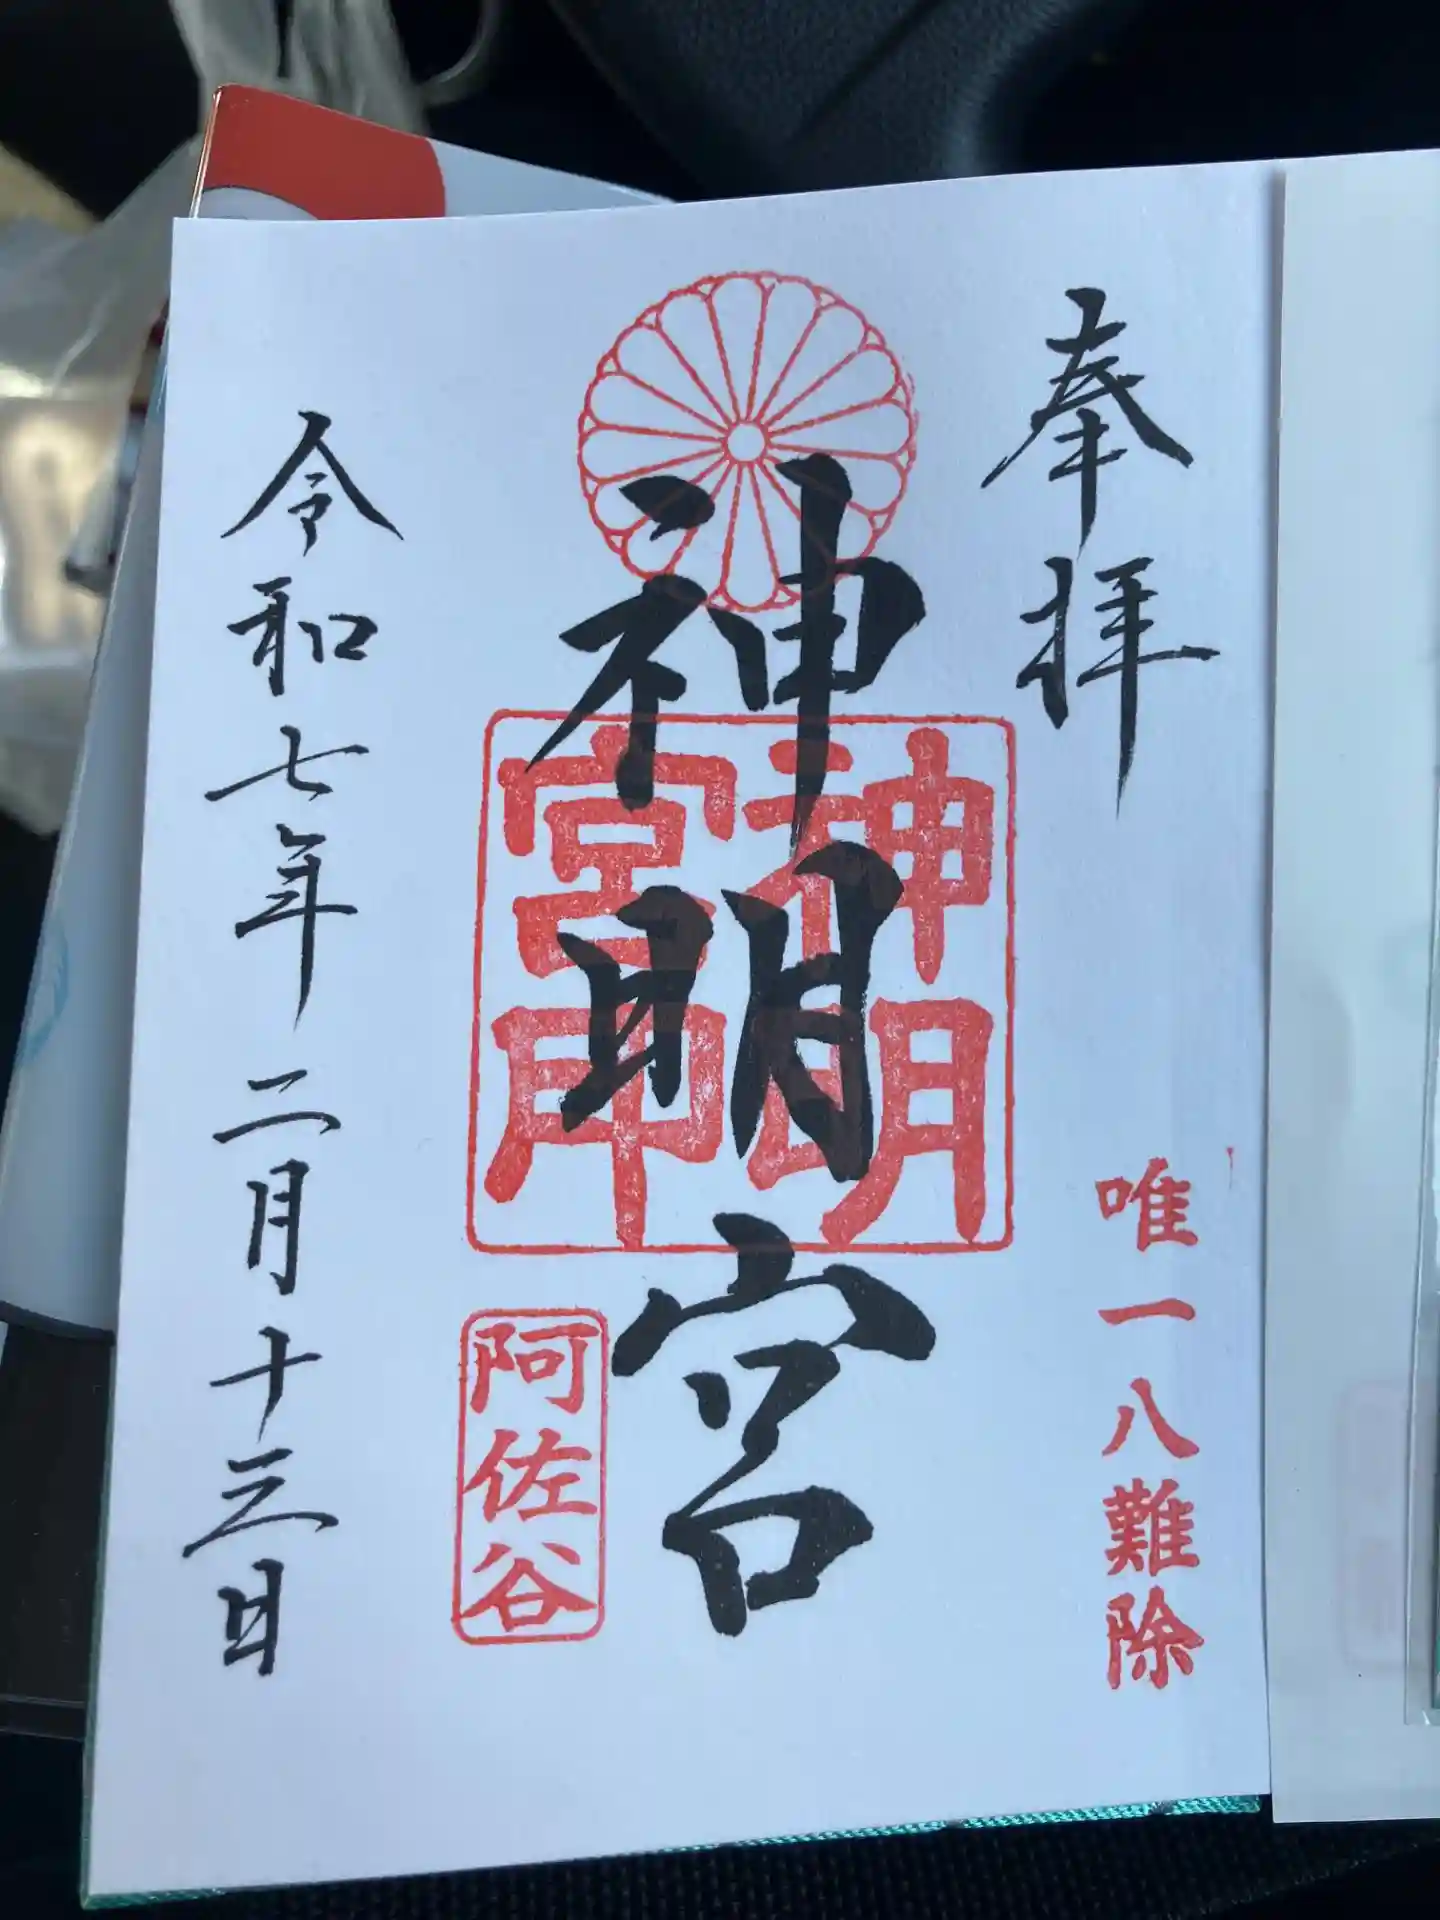 奉拝
唯一八難除
神明宮
神明宮印
阿佐谷
令和七年二月十三日